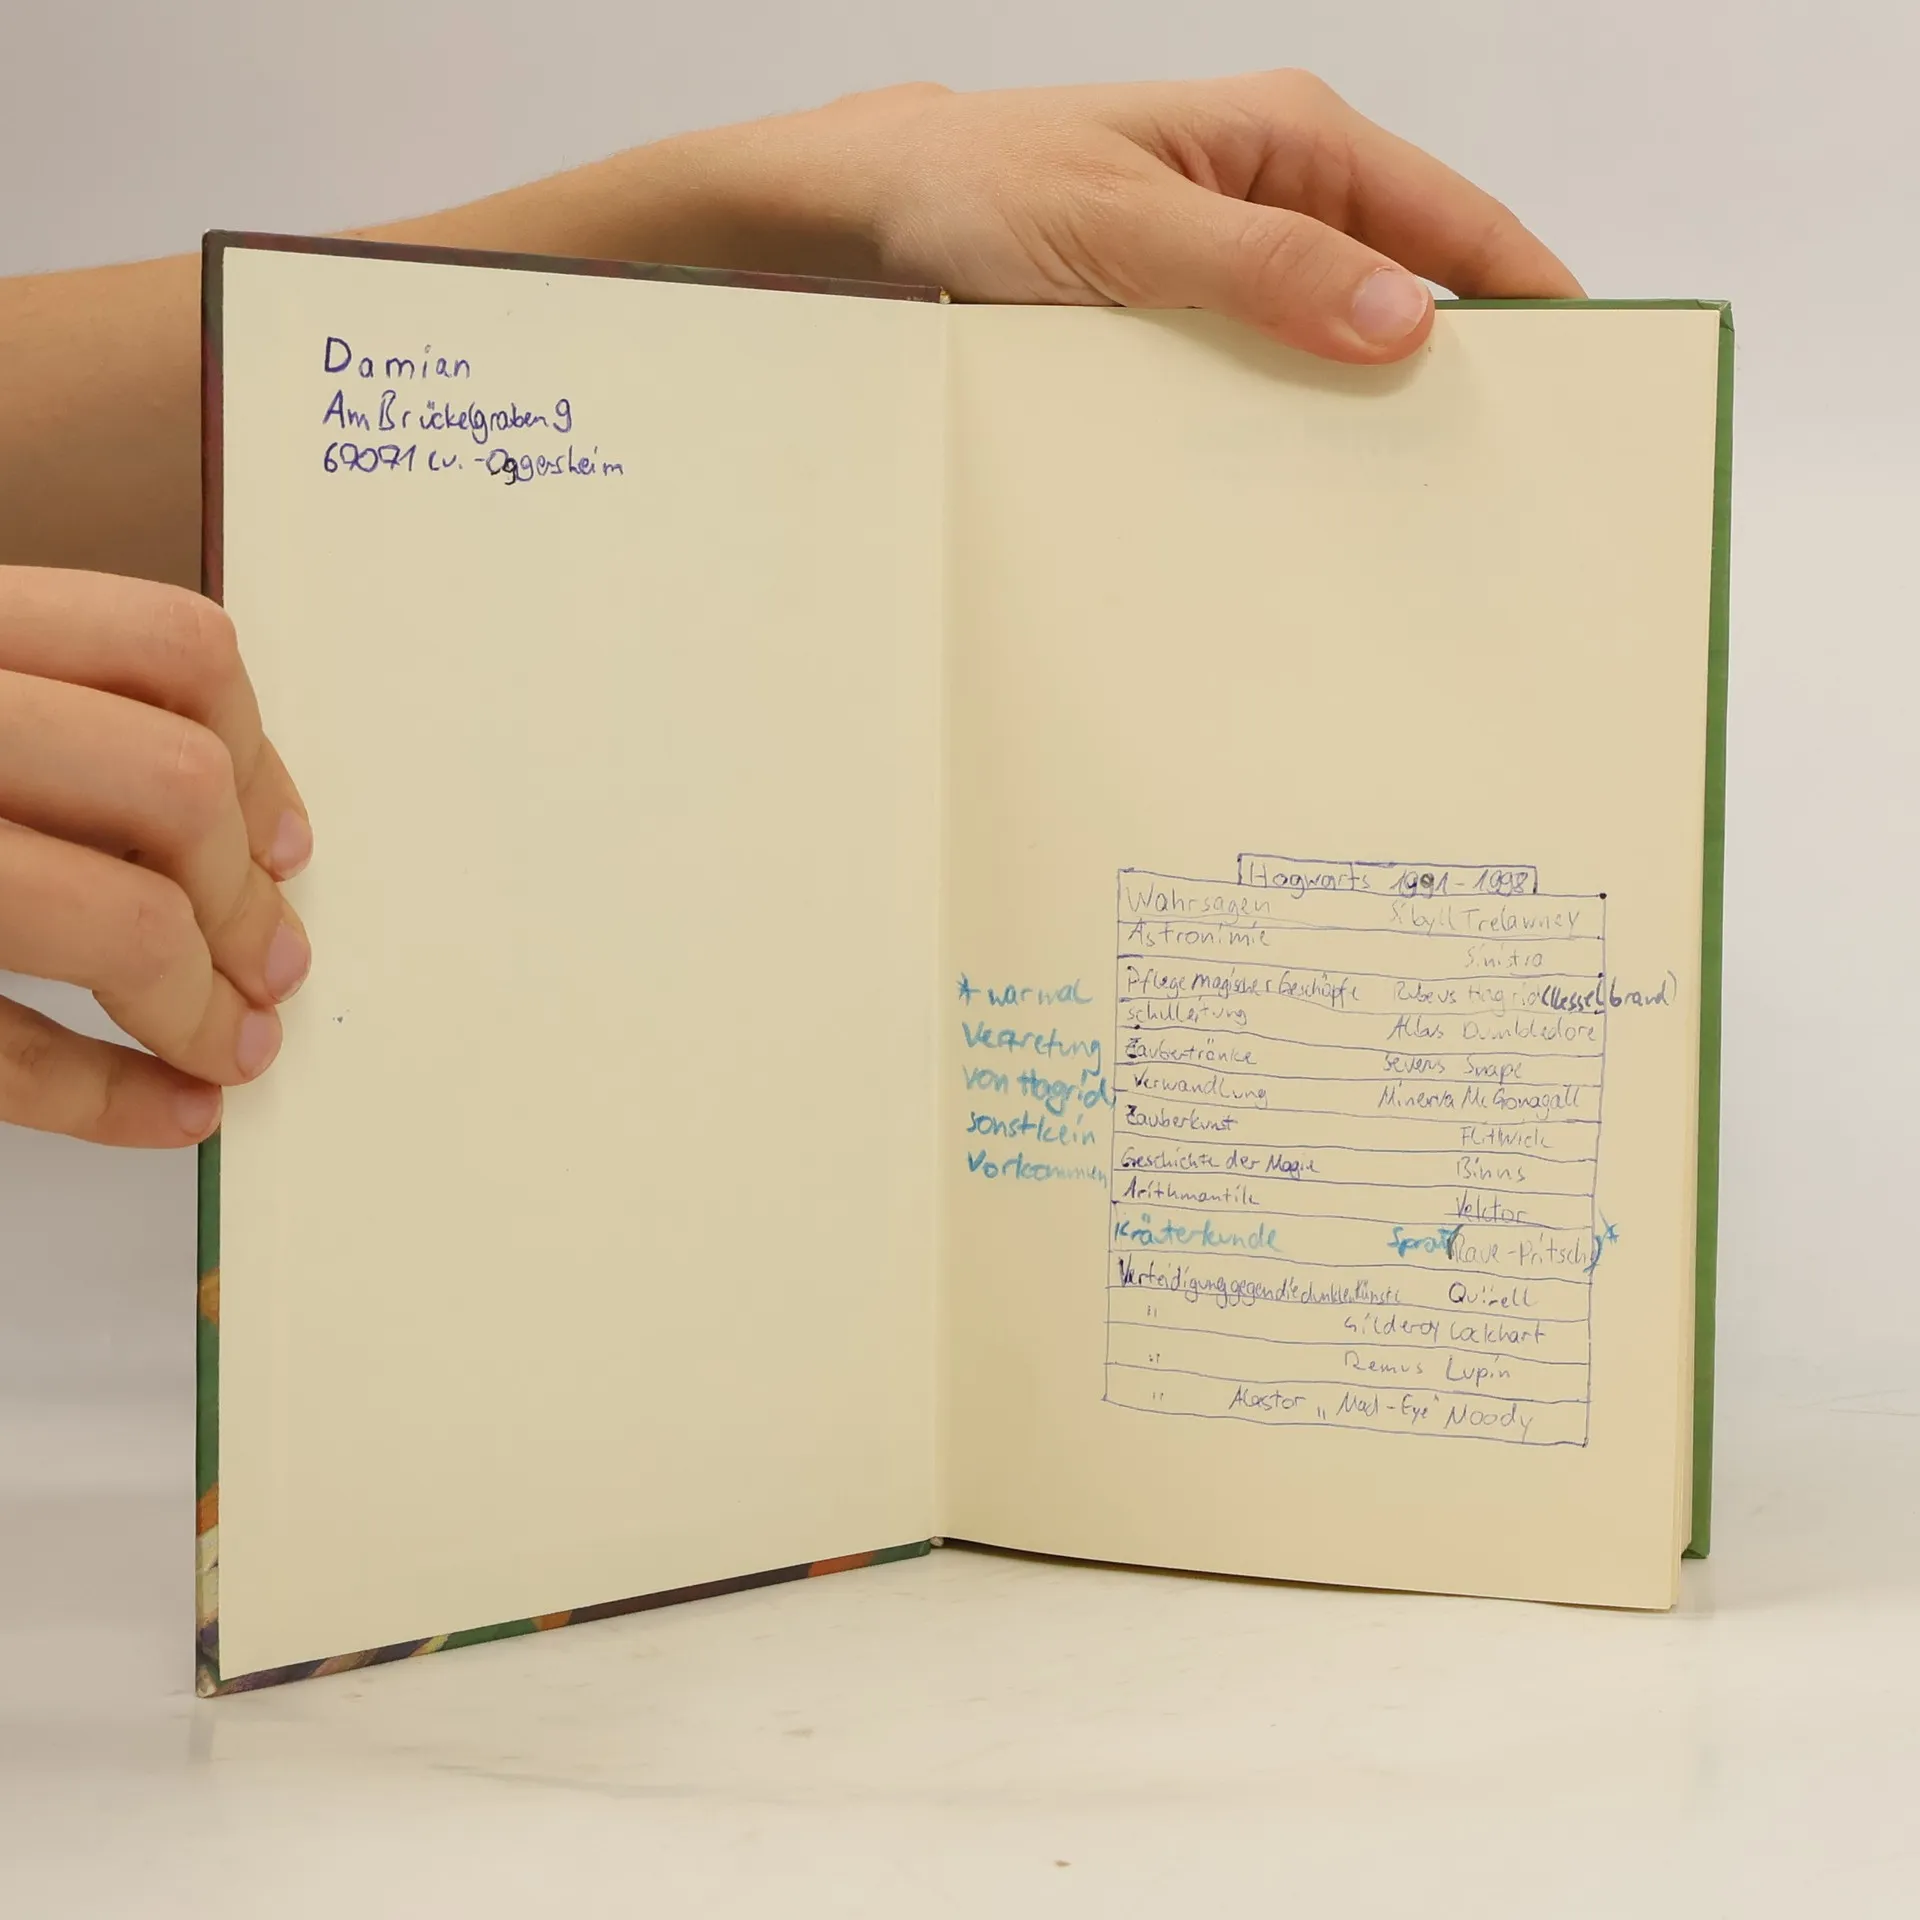 Damian
Am Brückelgraben 9
67071 Lu. - Oggersheim
Hogwarts 1991 - 1998
Wahrsagen Sibyll Trelawney
Astronimie Sinistra
Pflege magischer Geschöpfe Rubeus Hagrid (Kesselbrand)
schulleitung Albus Dumbledore
Zaubertränke Severus Snape
Verwandlung Minerva McGonagall
Zauberkunst Flitwick
Geschichte der Magie Binns
Arithmantik Vektor
Kräuterkunde Sprout (Raue-Pritsche)*
Verteidigung gegen die dunklen Künste Quirell
" Gilderoy Lockhart
" Remus Lupin
" Alastor „Mad-Eye" Moody
* war mal
Vertretung
von Hagrid,
sonst kein
Vorkommen